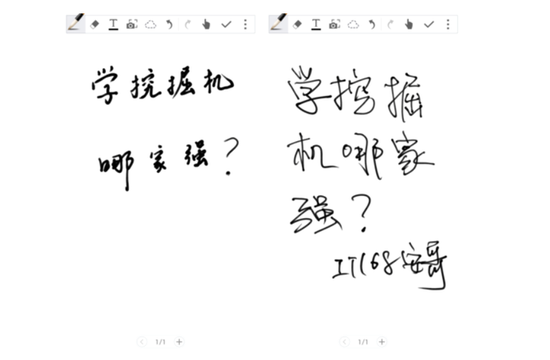 学挖掘机
哪家强？
1/1
学挖掘
机哪家
强？
IT168安哥
1/1